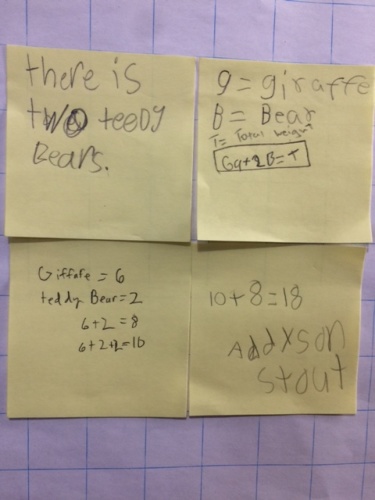 there is
two teedy
Bears.
g = giraffe
B = Bear
T = Total heigh
6g+2B=T
Giffafe = 6
teddy Bear=2
6+2=8
6+2+2=10
10+8=18
Addyson
Stout